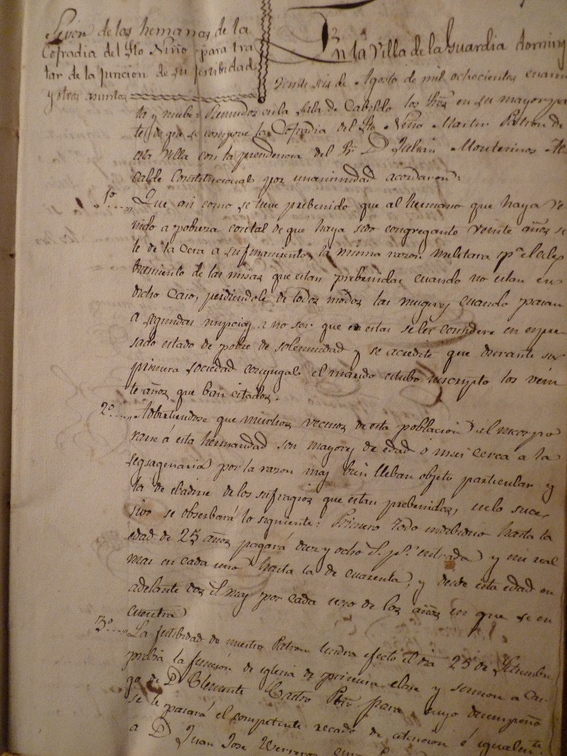 Seon de las hermanas de la
Cofradia del Sto Niño para tra
tar de la funcion de su festibidad
y otros asuntos
En la Villa de la Guardia doming
veinte seis de Agosto de mil ochocientos cuaren
ta y nuebe Reunidos en la Sala de Cabildo los en su mayor pa
te de que se compone la Cofradia del Sto Niño Martir Patron de
esta Villa con la presidencia del Sr D Julian Montesinos Al
calde Constitucional y por unanimidad acordaron:
1º Que asi como se tiene prebenido que al hermano que haya ve
nido a pobreza con tal de que haya sido congregante veinte años se
le de la cera a su la misma razon militara pª el cele
bramiento de las misas que estan prebenidas cuando no estan en
dicho caso, perdiendole de todos modos las mugeres cuando pasan
a segundas nupcias a no ser que estas se les considere en espre
sado estado de pobre de solemnidad y se acredite que durante su
primera sociedad conyugal el marido estubo inscripto los vein
te años que ban citados.
2º Adbirtiendose que muchos vecinos de esta poblacion al incorpo
rarse á esta hermandad son mayores de edad o mui cerca a la
seqsagenaria por la razon mas bien lleban objeto particular y
la de de los sufragios que estan prebenidos, en lo suce-
sivo se observará lo siguiente: Primero Todo individuo hasta la
edad de 25 años pagará diez y ocho r. pr. entrada y un real
mas en cada uno hasta la de cuarenta, y desde esta edad en
adelante dos rs mas por cada uno de los años en que se en
cuentra
3º La festibidad de nuestro Patron tendra efecto el dia 25 de Setiembre
prebia la funcion de iglesia de primera clase y sermon a car
go de D Clemente Castro Pbro para cuyo desempeño
se le pasará el competente recado de atencion é igualmte
a D Juan Jose